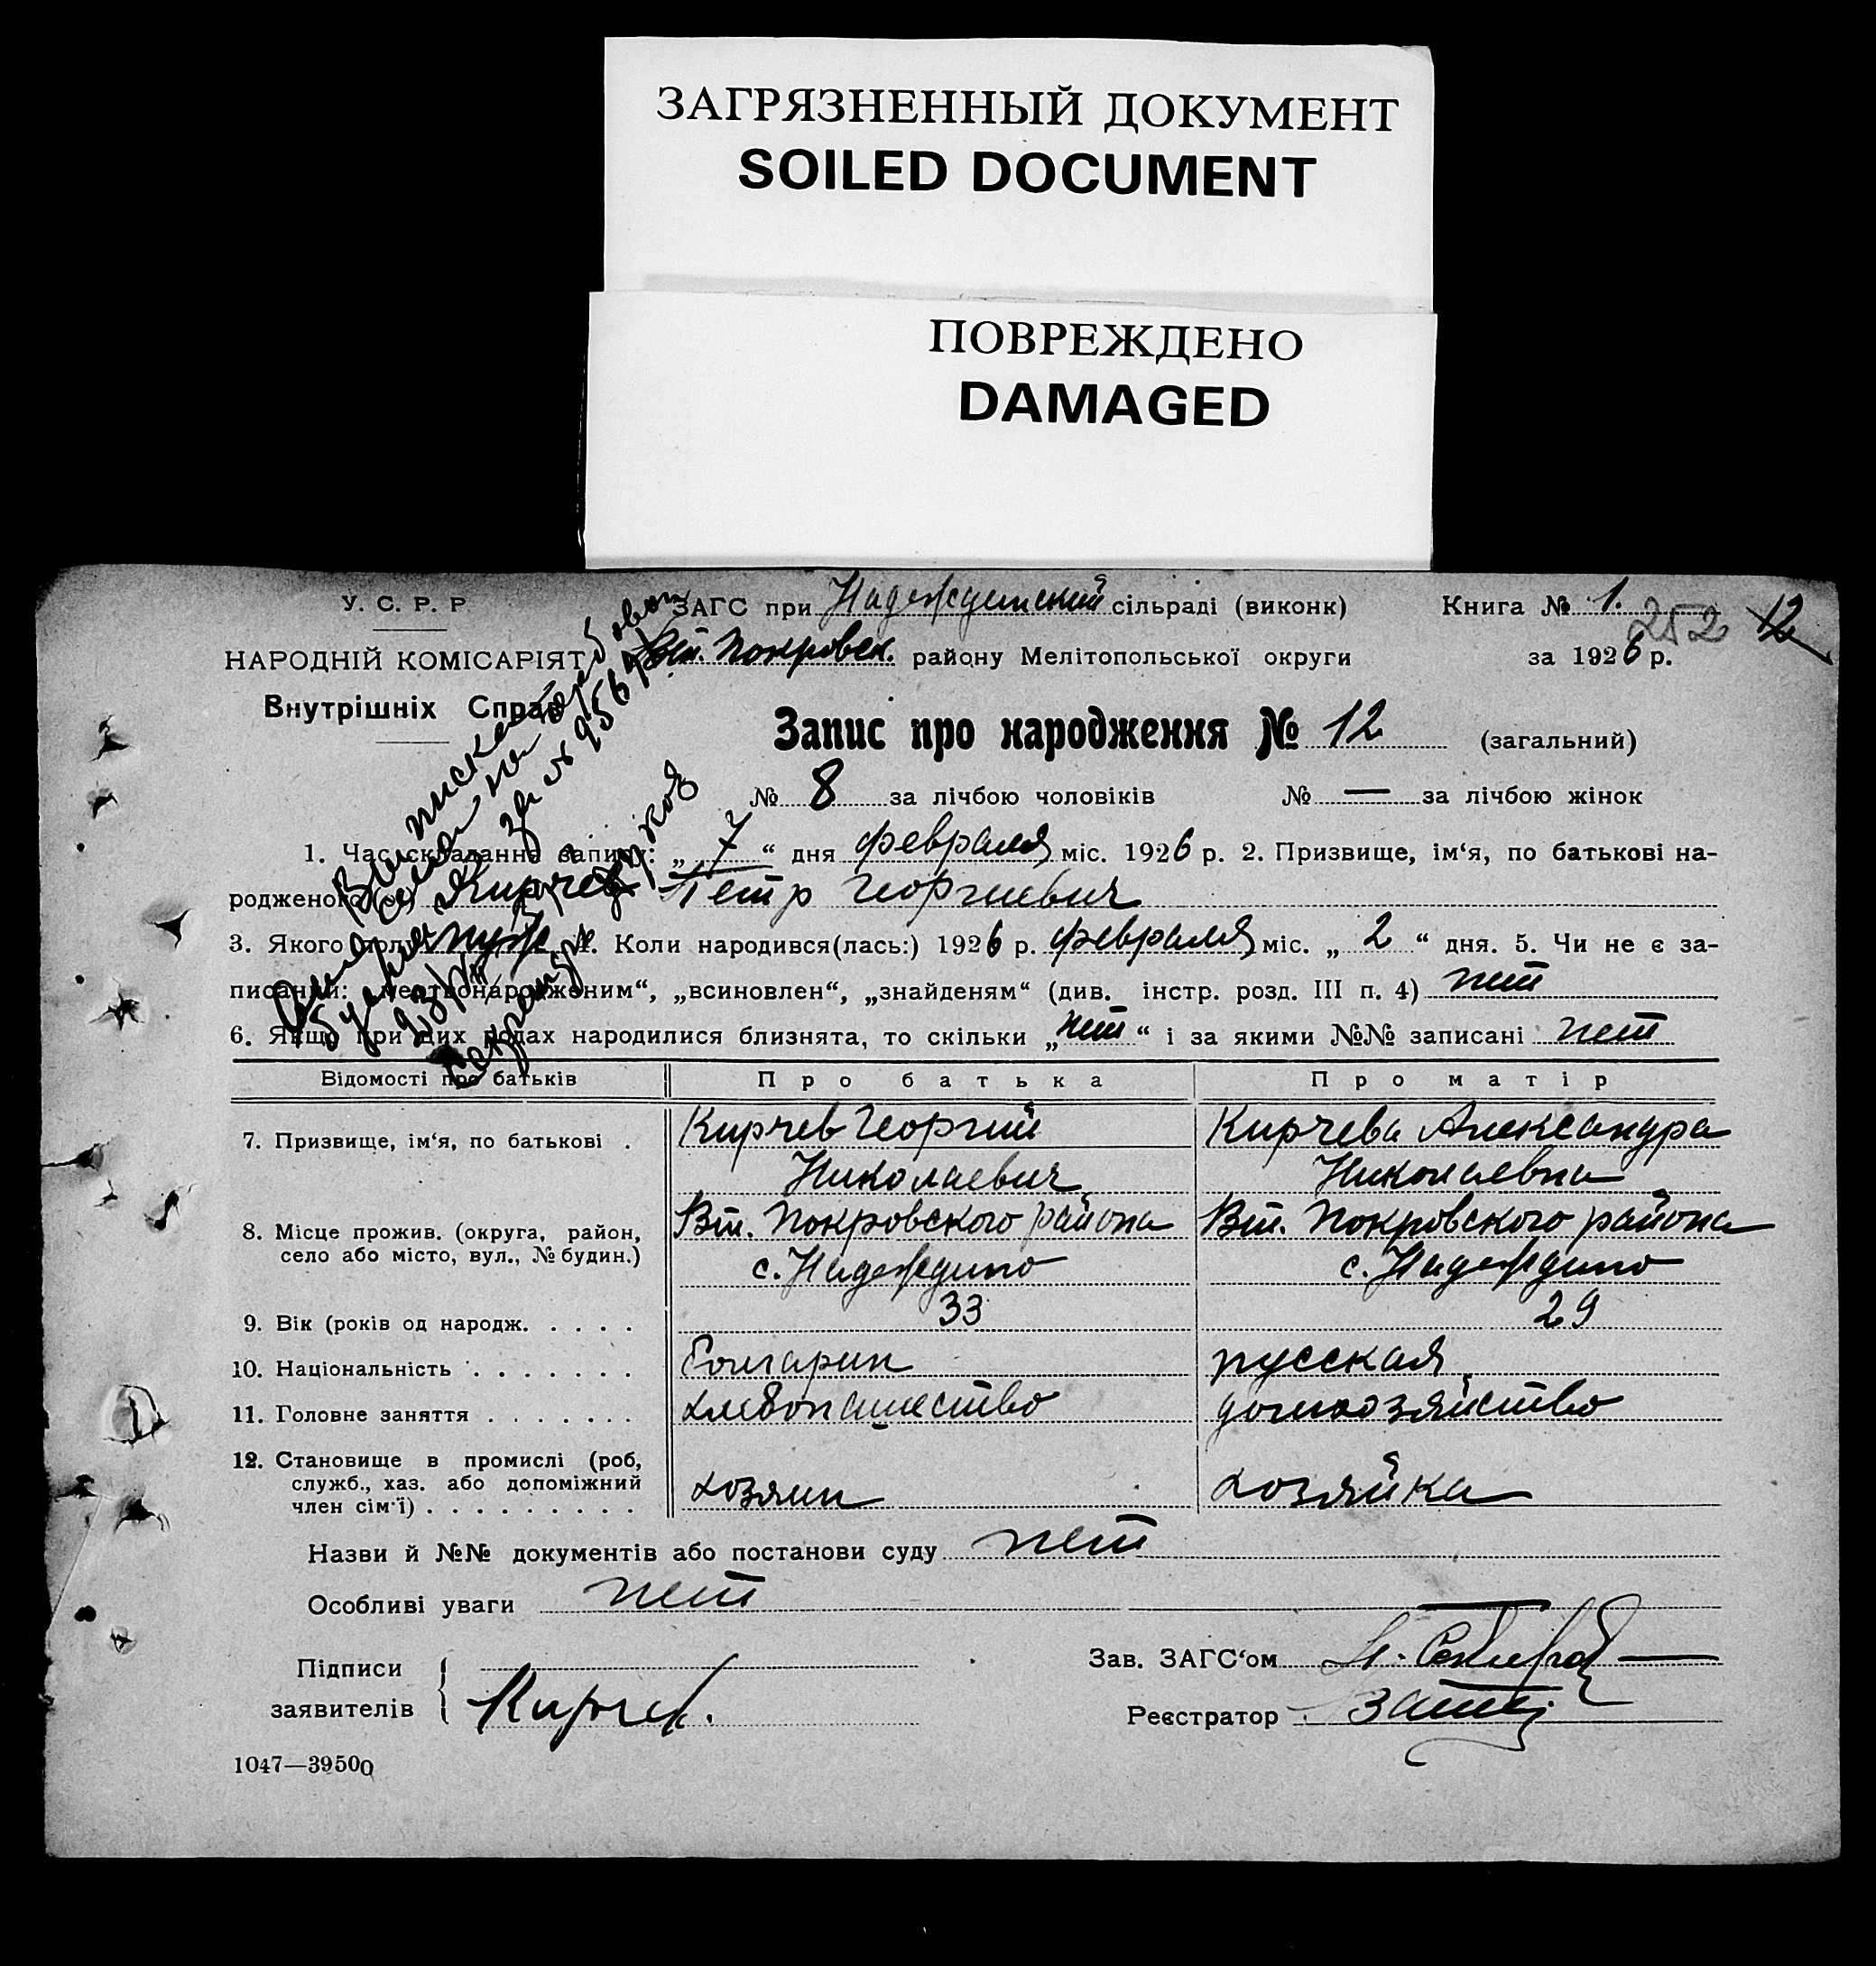 ЗАГРЯЗНЕННЫЙ ДОКУМЕНТ
SOILED DOCUMENT
ПОВРЕЖДЕНО
DAMAGED
У. С. Р. Р
НАРОДНІЙ КОМІСАРІЯТ
Внутрішніх Справ
ЗАГС при Надеждинский сільраді (виконк) Книга № 1.
252 12
Вт. Покровск. району Мелітопольської округи за 1926 р.
Запис про народження № 12 (загальний)
№ 8 за лічбою чоловіків № — за лічбою жінок
1. Час складання запису: „7“ дня февраля міс. 1926 р. 2. Призвище, ім‘я, по батькові на-
родженого(ої) Кирчев Петр Георгиевич
3. Якого полу муж 4. Коли народився(лась:) 1926 р. февраля міс. „2“ дня. 5. Чи не є за-
писаний: „мертвонародженим“, „всиновлен“, „знайденям“ (див. інстр. розд. III п. 4) нет
6. Якщо при цих родах народилися близнята, то скільки „нет“ і за якими №№ записані нет
Відомості про батьків Про батька Про матір
7. Призвище, ім‘я, по батькові . Кирчев Георгий Кирчева Александра
Николаевич Николаевна
8. Місце прожив. (округа, район, Вт. Покровского района Вт. Покровского района
село або місто, вул., № будин.) с. Надеждино с. Надеждино
9. Вік (років од народж. . . . . 33 29
10. Національність . . . . . . . болгарин русская
11. Головне заняття . . . . . . . хлебопашество домхозяйство
12. Становище в промислі (роб,
служб., хаз. або допоміжний хозяин хозяйка
член сім‘ї) . . . . . . . . .
Назви й №№ документів або постанови суду нет
Особливі уваги нет
Підписи
заявителів Кирчев.
Зав. ЗАГС‘ом
Реєстратор
1047—39500